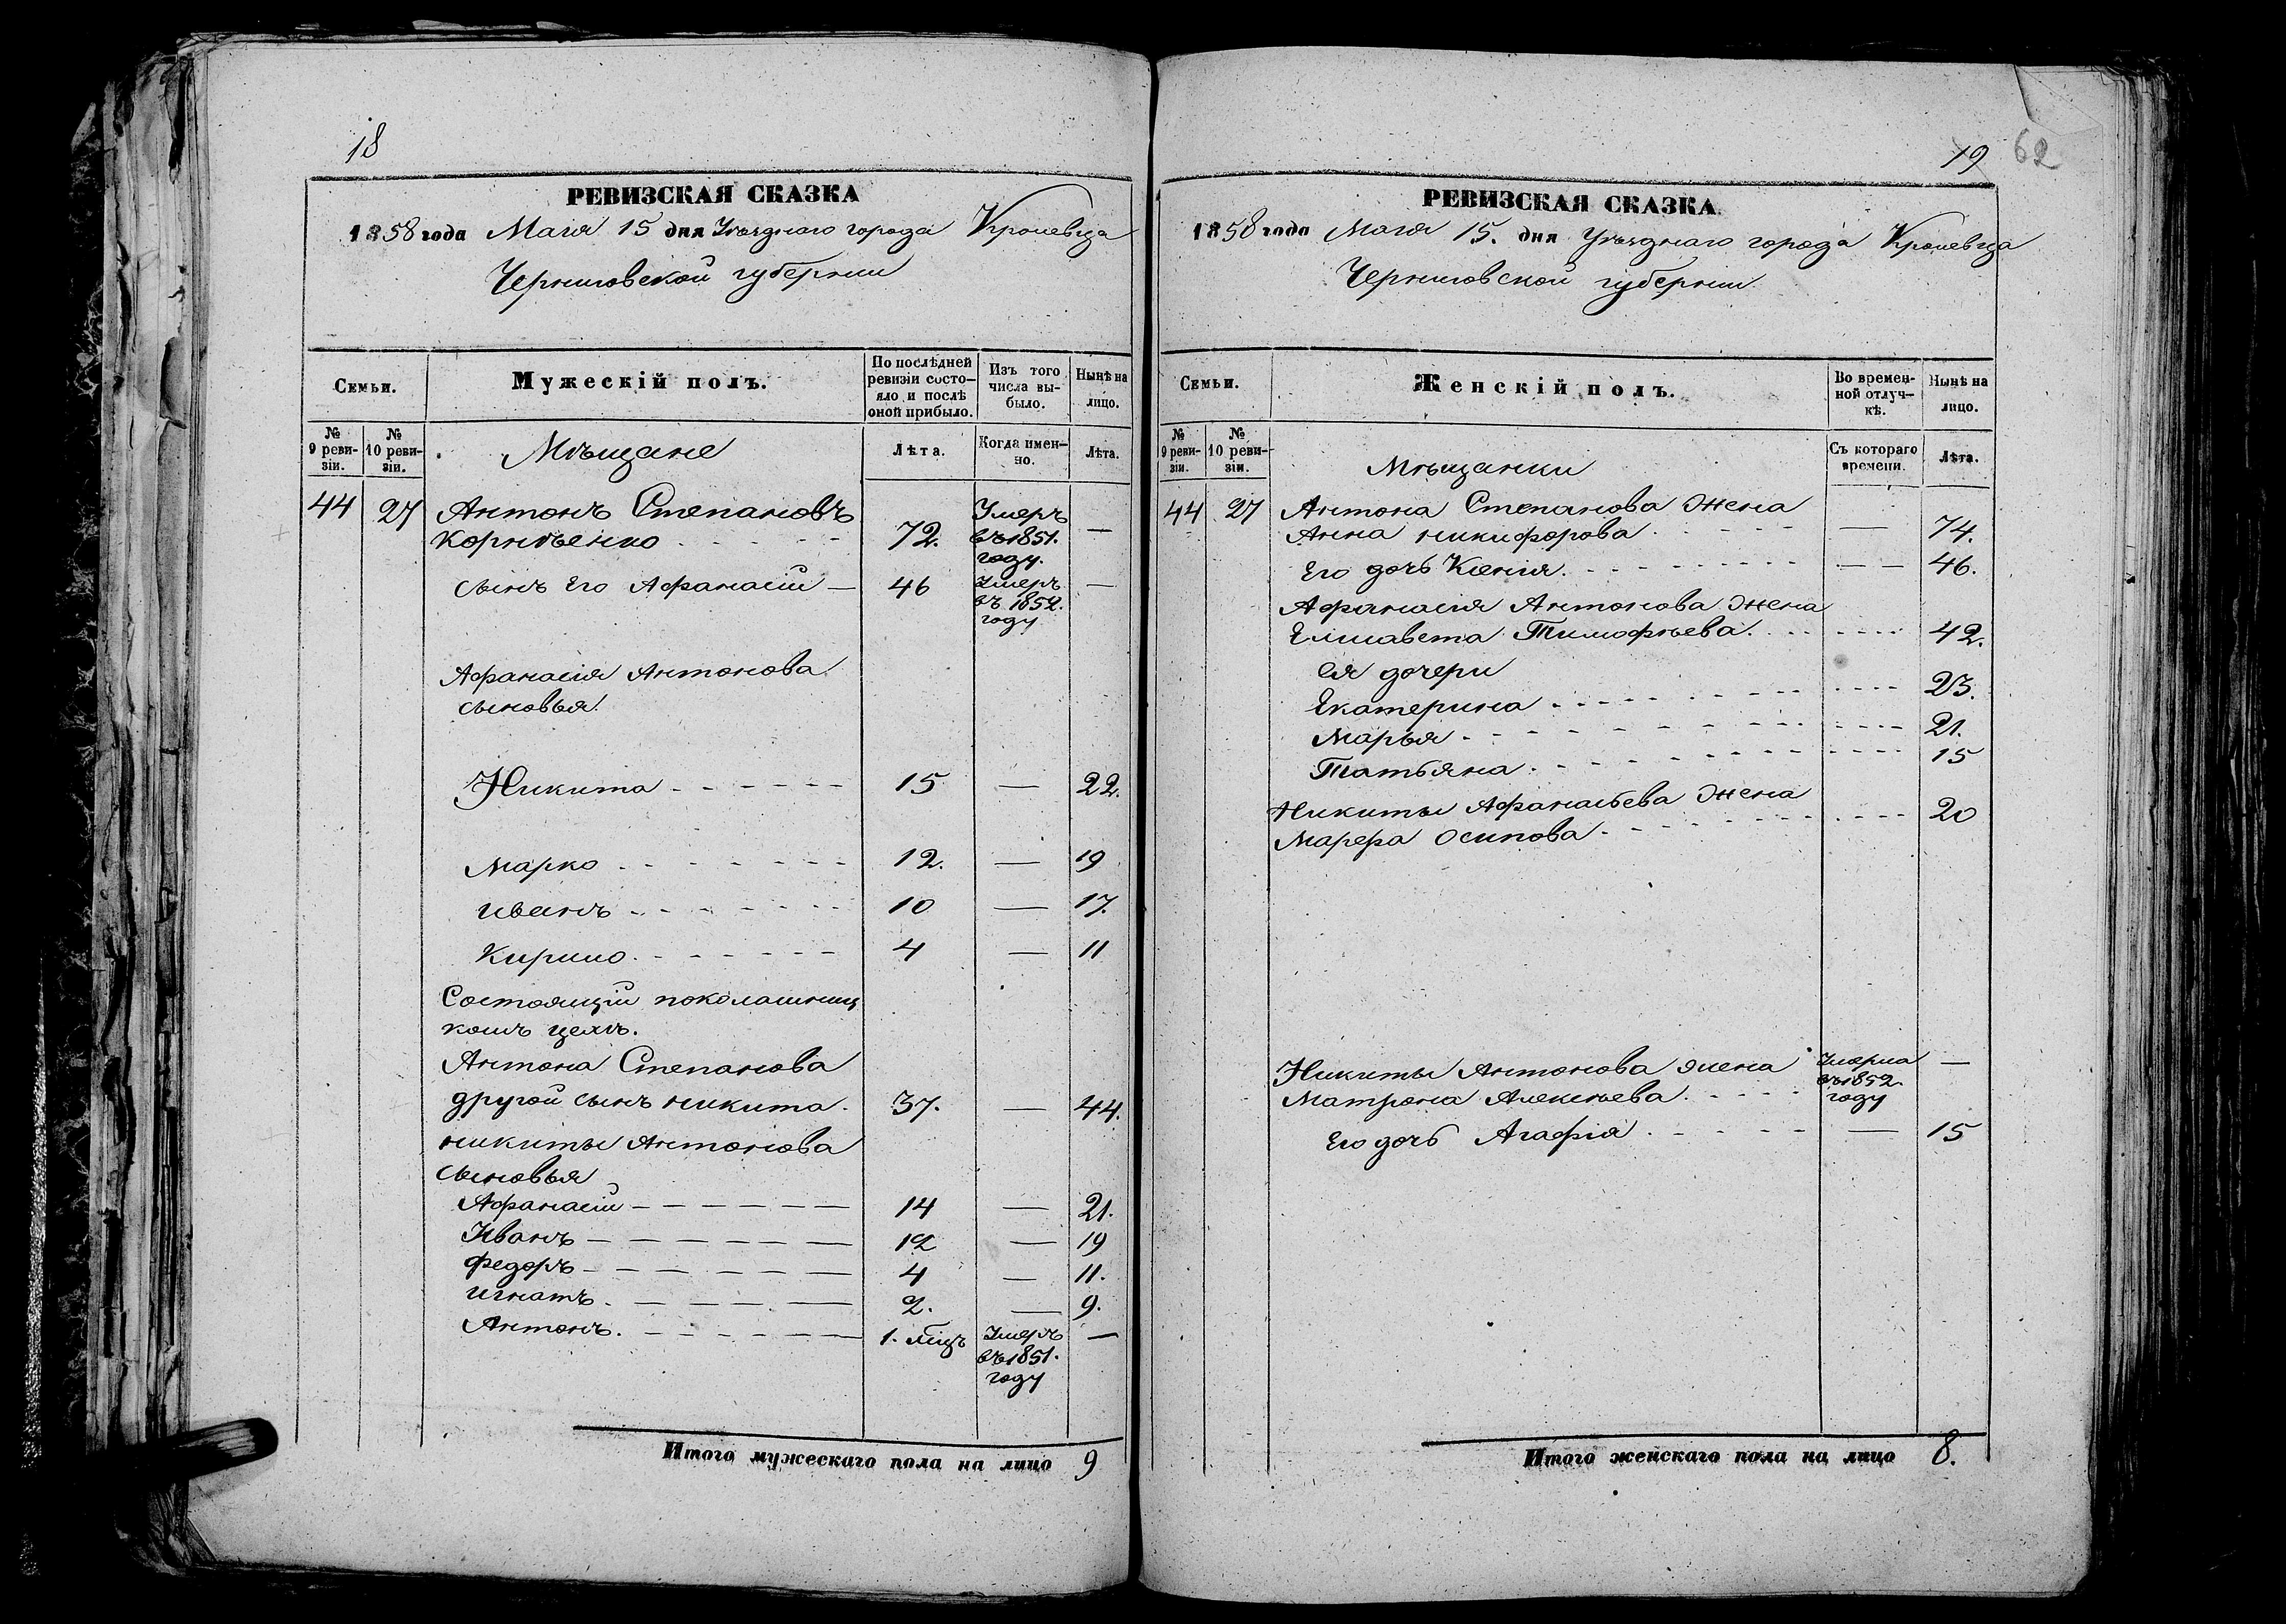 18
РЕВИЗСКАЯ СКАЗКА
1858 года Маія 15 дня Уѣзднаго города Кролевца
Черниговской губерніи
Семьи.
Мужескій полъ.
По послѣдней ревизіи состо-
яло и послѣ оной прибыло.
Изъ того числа вы-
было.
Нынѣ на лицо.
№ 9 реви-
зіи.
№ 10 реви-
зіи.
Мѣщане
Лѣта.
Когда имен-
но.
Лѣта.
44 27 Антонъ Степановъ
Корнѣенко 72. Умеръ въ 1851. году. —
сынъ Его Афанасій — 46 Умеръ въ 1852. году —
Афанасія Антонова
сыновья.
Никита 15 — 22.
Марко 12. — 19
Иванъ 10 — 17.
Кирило 4 — 11
Состоящій
цехѣ.
Антона Степанова
другой сынъ никита. 37. — 44.
никиты Антонова
сыновья
Афанасій 14 — 21.
Иванъ 12 — 19
Федоръ 4 — 11.
Игнатъ 2. — 9.
Антонъ. 1. мцъ Умеръ въ 1851. году —
Итого мужескаго пола на лицо 9
19 62
РЕВИЗСКАЯ СКАЗКА.
1858 года Маія 15. дня Уѣзднаго города Кролевца
Черниговской губерніи.
Семьи.
Женскій полъ.
Во времен-
ной отлуч-
кѣ.
Нынѣ на лицо.
№ 9 реви-
зіи.
№ 10 реви-
зіи.
Мѣщанки
Съ котораго времени.
Лѣта.
44 27 Антона Степанова Жена
Анна никифорова — 74.
Его дочь Ксенія. — — 46.
Афанасія Антонова Жена
Елисавета Тимофѣева. 42.
Ея дочери
Екатерина 23.
Марья 21.
Татьяна 15
Никиты Афанасьева Жена
Марфа Осипова 20
Никиты Антонова жена Умерла въ 1852. году —
Матрона Алексѣева.
Его дочь Агафія — 15
Итого женскаго пола на лицо 8.